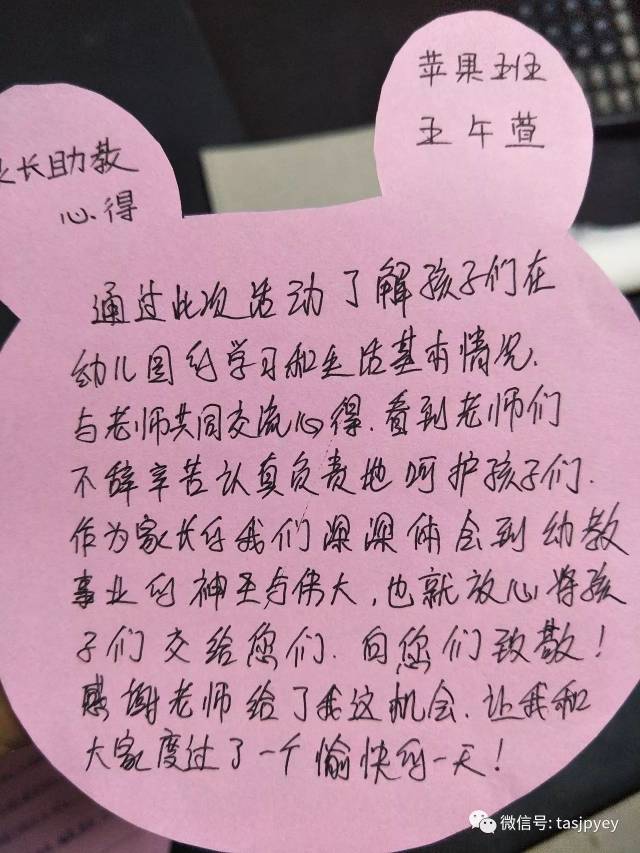 家长助教
心得
苹果班
王午萱
通过此次活动了解孩子们在
幼儿园的学习和生活基本情况.
与老师共同交流心得.看到老师们
不辞辛苦认真负责地呵护孩子们.
作为家长的我们深深体会到幼教
事业的神圣与伟大,也就放心将孩
子们交给您们.向您们致敬!
感谢老师给了我这机会.让我和
大家度过了一个愉快的一天!
微信号: tasjpyey